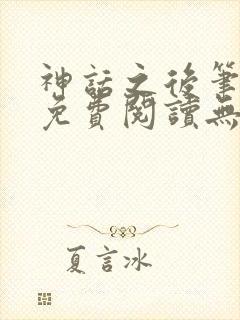 神話之後筆
免費閱讀無
夏言冰